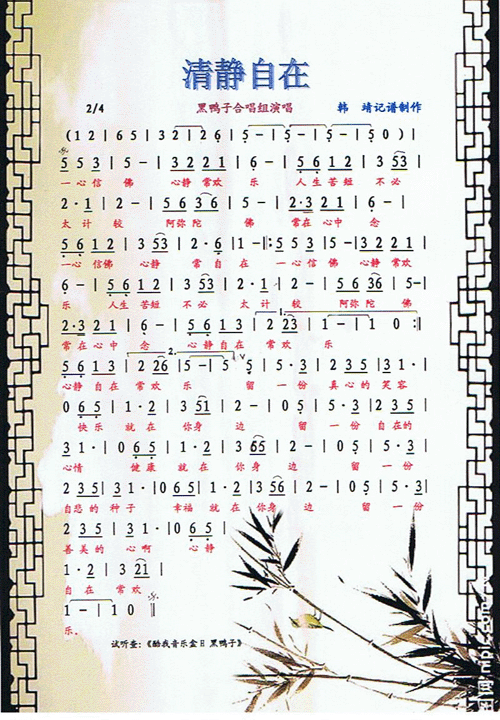 清静自在
2/4 黑鸭子合唱组演唱 韩 靖记谱制作
(1 2 | 6 5 | 3 2 | 2 6 | 5 - | 5 - | 5 - | 5 0 ) |
5 5 3 | 5 - | 3 2 2 1 | 6 - | 5 6 1 2 | 3 5 3 |
一心信 佛 心静常欢 乐 人生苦短 不必
2 · 1 | 2 - | 5 6 3 6 | 5 - | 2 · 3 2 1 | 6 - |
太计 较 阿弥陀 佛 常在心中 念
5 6 1 2 | 3 5 3 | 2 · 6 | 1 - :| 5 5 3 | 5 - | 3 2 2 1 |
一心信佛 心静 常自 在 一心信 佛 心静常欢
6 - | 5 6 1 2 | 3 5 3 | 2 · 1 | 2 - | 5 6 3 6 | 5 - |
乐 人生苦短 不必 太计 较 阿弥陀 佛
2 · 3 2 1 | 6 - | 5 6 1 3 | 2 2 3 | 1 - | 1 0 :|
常在心中 念 心静自在 常欢 乐
5 6 1 3 | 2 2 6 | 5 - | 5 5 | 5 · 3 | 2 3 5 | 3 1 · |
心静自在 常欢 乐 留 一份 真心的 笑容
0 6 5 | 1 · 2 | 3 5 1 | 2 - | 0 5 | 5 · 3 | 2 3 5 |
快乐 就在 你身 边 留 一份 自在的
3 1 · | 0 6 5 | 1 · 2 | 3 6 5 | 2 - | 0 5 | 5 · 3 |
心情 健康 就在 你身 边 留 一份
2 3 5 | 3 1 · | 0 6 5 | 1 · 2 | 3 5 6 | 2 - | 0 5 | 5 · 3 |
自悲的 种子 幸福 就在 你身 边 留 一份
2 3 5 | 3 1 · | 0 6 5 |
善美的 心啊 心静
1 · 2 | 3 2 1 |
自在 常欢
1 - | 1 0 ‖
乐。
试听登:《酷我音乐盒日 黑鸭子》
图网 nipic.com